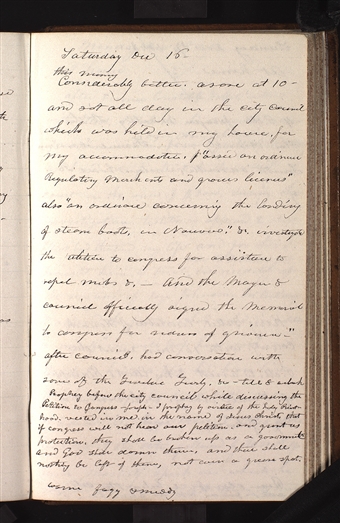 Saturday Dec 16-
this morning
Considerably better. arose at 10-
and sat all day in the City Council
which was held in my house, for
my accommodation. passed "an ordinance
Regulating Merchants and grocers licences"
also "an ordinance concerning the landing
of steam boats, in Nauvoo." &c. investigate
the petition to congress for assistance to
repel mobs &c. — And the Mayor &
council officially signed the Memorial
to congress for redress of grievances-"
after council. had conversation with
some of the Twelve &c - till 8 oclock
Prophecy before the city council while discussing the
Petition to Congress - I prophecy by virtue of the holy Priest-
hood vested in me in the name of Jesus Christ that
if congress will not hear our petition and grant us
protection. they shall be broken up as a government
and God shall damn them, and there shall
nothing be left of them, not even a grease spot.
warm foggy